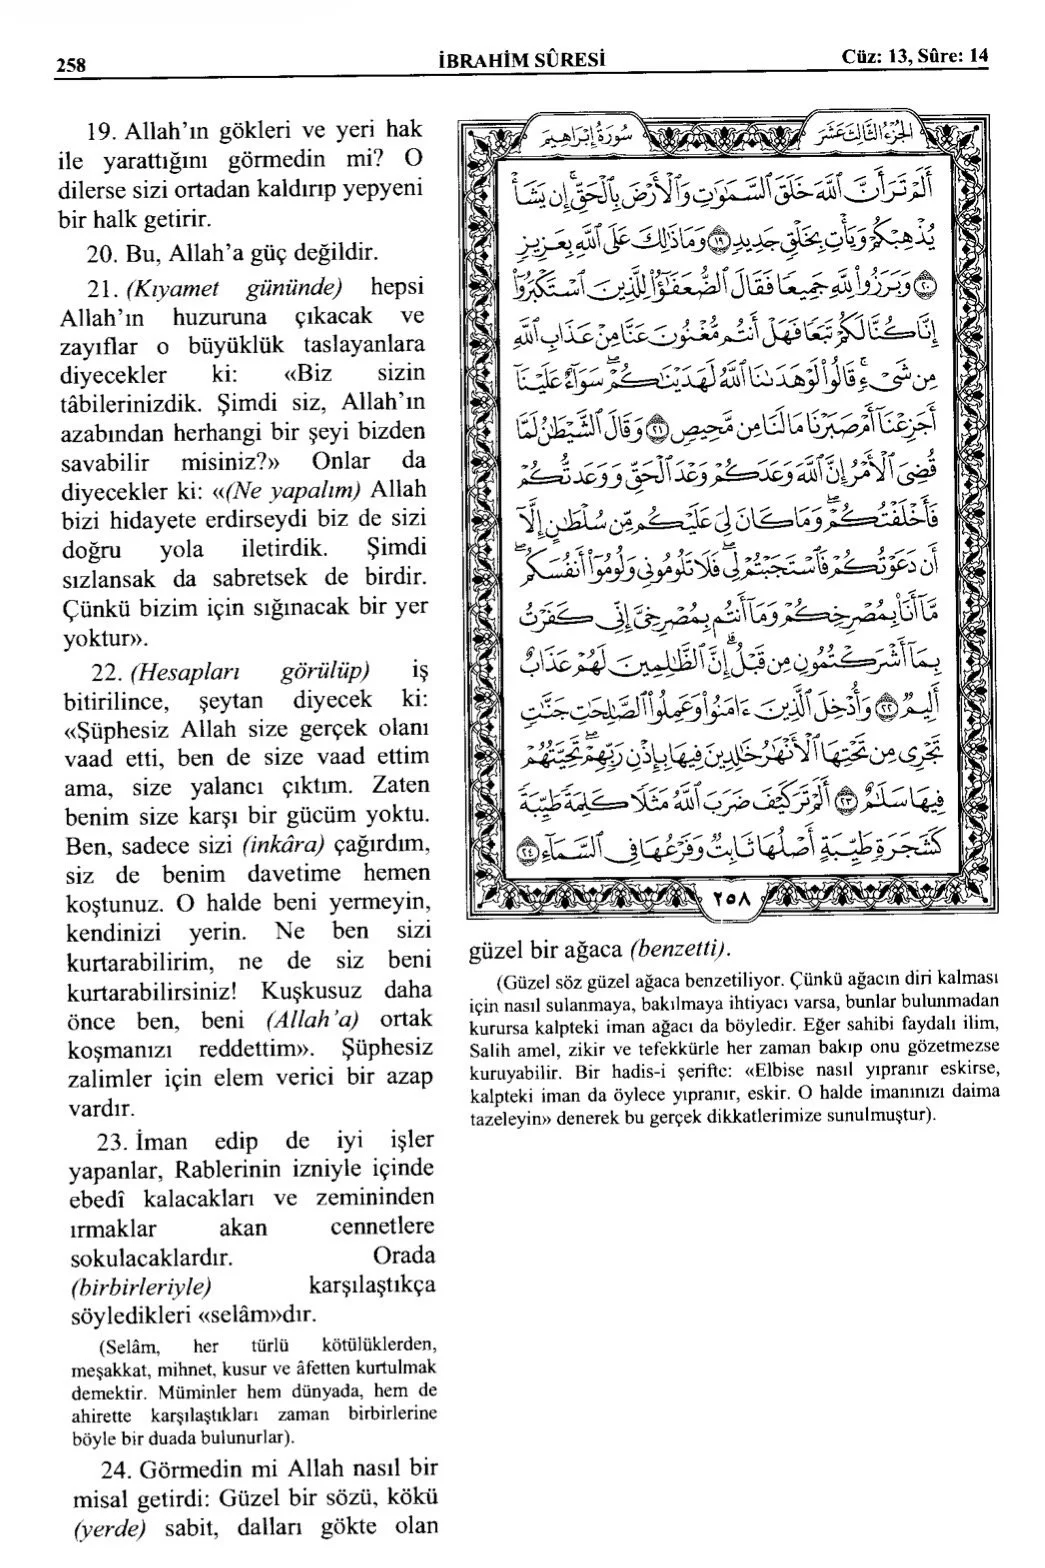 258
İBRAHİM SÛRESİ
Cüz: 13, Sûre: 14
19. Allah’ın gökleri ve yeri hak
ile yarattığını görmedin mi? O
dilerse sizi ortadan kaldırıp yepyeni
bir halk getirir.
20. Bu, Allah’a güç değildir.
21. (Kıyamet gününde) hepsi
Allah’ın huzuruna çıkacak ve
zayıflar o büyüklük taslayanlara
diyecekler ki: «Biz sizin
tâbilerinizdik. Şimdi siz, Allah’ın
azabından herhangi bir şeyi bizden
savabilir misiniz?» Onlar da
diyecekler ki: «(Ne yapalım) Allah
bizi hidayete erdirseydi biz de sizi
doğru yola iletirdik. Şimdi
sızlansak da sabretsek de birdir.
Çünkü bizim için sığınacak bir yer
yoktur».
22. (Hesapları görülüp) iş
bitirilince, şeytan diyecek ki:
«Şüphesiz Allah size gerçek olanı
vaad etti, ben de size vaad ettim
ama, size yalancı çıktım. Zaten
benim size karşı bir gücüm yoktu.
Ben, sadece sizi (inkâra) çağırdım,
siz de benim davetime hemen
koştunuz. O halde beni yermeyin,
kendinizi yerin. Ne ben sizi
kurtarabilirim, ne de siz beni
kurtarabilirsiniz! Kuşkusuz daha
önce ben, beni (Allah’a) ortak
koşmanızı reddettim». Şüphesiz
zalimler için elem verici bir azap
vardır.
23. İman edip de iyi işler
yapanlar, Rablerinin izniyle içinde
ebedî kalacakları ve zemininden
ırmaklar akan cennetlere
sokulacaklardır. Orada
(birbirleriyle) karşılaştıkça
söyledikleri «selâm»dır.
(Selâm, her türlü kötülüklerden,
meşakkat, mihnet, kusur ve âfetten kurtulmak
demektir. Müminler hem dünyada, hem de
ahirette karşılaştıkları zaman birbirlerine
böyle bir duada bulunurlar).
24. Görmedin mi Allah nasıl bir
misal getirdi: Güzel bir sözü, kökü
(yerde) sabit, dalları gökte olan
الجزء الثالث عشر
سورة إبراهيم
أَلَمْ تَرَ أَنَّ اللَّهَ خَلَقَ السَّمَٰوَاتِ وَالْأَرْضَ بِالْحَقِّ ۚ إِن يَشَأْ
يُذْهِبْكُمْ وَيَأْتِ بِخَلْقٍ جَدِيدٍ ١٩ وَمَا ذَٰلِكَ عَلَى اللَّهِ بِعَزِيزٍ
٢٠ وَبَرَزُوا لِلَّهِ جَمِيعًا فَقَالَ الضُّعَفَٰٓؤُا لِلَّذِينَ اسْتَكْبَرُوٓا
إِنَّا كُنَّا لَكُمْ تَبَعًا فَهَلْ أَنتُم مُّغْنُونَ عَنَّا مِنْ عَذَابِ اللَّهِ
مِن شَىْءٍ ۚ قَالُوا لَوْ هَدَىٰنَا اللَّهُ لَهَدَيْنَٰكُمْ ۖ سَوَآءٌ عَلَيْنَآ
أَجَزِعْنَآ أَمْ صَبَرْنَا مَا لَنَا مِن مَّحِيصٍ ٢١ وَقَالَ الشَّيْطَٰنُ لَمَّا
قُضِىَ الْأَمْرُ إِنَّ اللَّهَ وَعَدَكُمْ وَعْدَ الْحَقِّ وَوَعَدتُّكُمْ
فَأَخْلَفْتُكُمْ ۖ وَمَا كَانَ لِىَ عَلَيْكُم مِّن سُلْطَٰنٍ إِلَّآ
أَن دَعَوْتُكُمْ فَاسْتَجَبْتُمْ لِى ۖ فَلَا تَلُومُونِى وَلُومُوٓا أَنفُسَكُم ۖ
مَّآ أَنَا بِمُصْرِخِكُمْ وَمَآ أَنتُم بِمُصْرِخِىَّ ۖ إِنِّى كَفَرْتُ
بِمَآ أَشْرَكْتُمُونِ مِن قَبْلُ ۗ إِنَّ الظَّٰلِمِينَ لَهُمْ عَذَابٌ
أَلِيمٌ ٢٢ وَأُدْخِلَ الَّذِينَ ءَامَنُوا وَعَمِلُوا الصَّٰلِحَٰتِ جَنَّٰتٍ
تَجْرِى مِن تَحْتِهَا الْأَنْهَٰرُ خَٰلِدِينَ فِيهَا بِإِذْنِ رَبِّهِمْ ۖ تَحِيَّتُهُمْ
فِيهَا سَلَٰمٌ ٢٣ أَلَمْ تَرَ كَيْفَ ضَرَبَ اللَّهُ مَثَلًا كَلِمَةً طَيِّبَةً
كَشَجَرَةٍ طَيِّبَةٍ أَصْلُهَا ثَابِتٌ وَفَرْعُهَا فِى السَّمَآءِ ٢٤
٢٥٨
güzel bir ağaca (benzetti).
(Güzel söz güzel ağaca benzetiliyor. Çünkü ağacın diri kalması
için nasıl sulanmaya, bakılmaya ihtiyacı varsa, bunlar bulunmadan
kurursa kalpteki iman ağacı da böyledir. Eğer sahibi faydalı ilim,
Salih amel, zikir ve tefekkürle her zaman bakıp onu gözetmezse
kuruyabilir. Bir hadis-i şerifte: «Elbise nasıl yıpranır eskirse,
kalpteki iman da öylece yıpranır, eskir. O halde imanınızı daima
tazeleyin» denerek bu gerçek dikkatlerimize sunulmuştur).